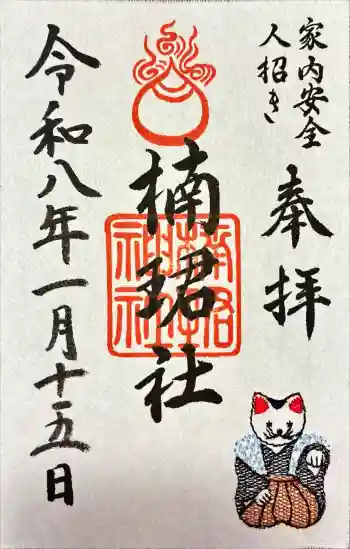 家内安全
人招き
奉拝
楠珺社
令和八年一月十五日